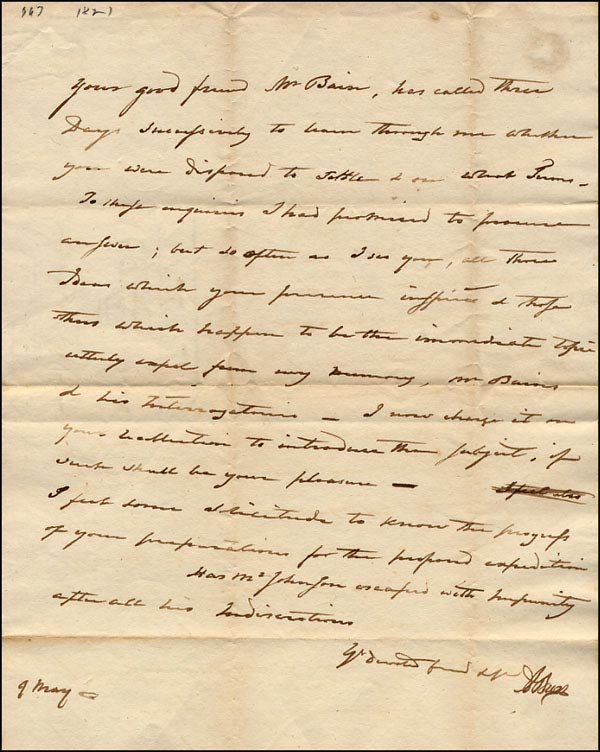 1827
Your good friend Mr Bain, has called three
Days successively to learn through me whether
you were disposed to settle & on what Terms –
To these enquiries I had promised to procure
answer; but so often as I see you, all those
Ideas which your presence inspires & those
others which happen to be the immediate topic
utterly expel from my memory, Mr Bain
& his Interrogatories – I now charge it on
your recollection to introduce the subject, if
such shall be your pleasure –
I feel some solicitude to know the progress
of your preparations for the proposed expedition
Has Mr Johnson escaped with Impunity
after all his Indiscretions
Yr devoted friend &
9 May